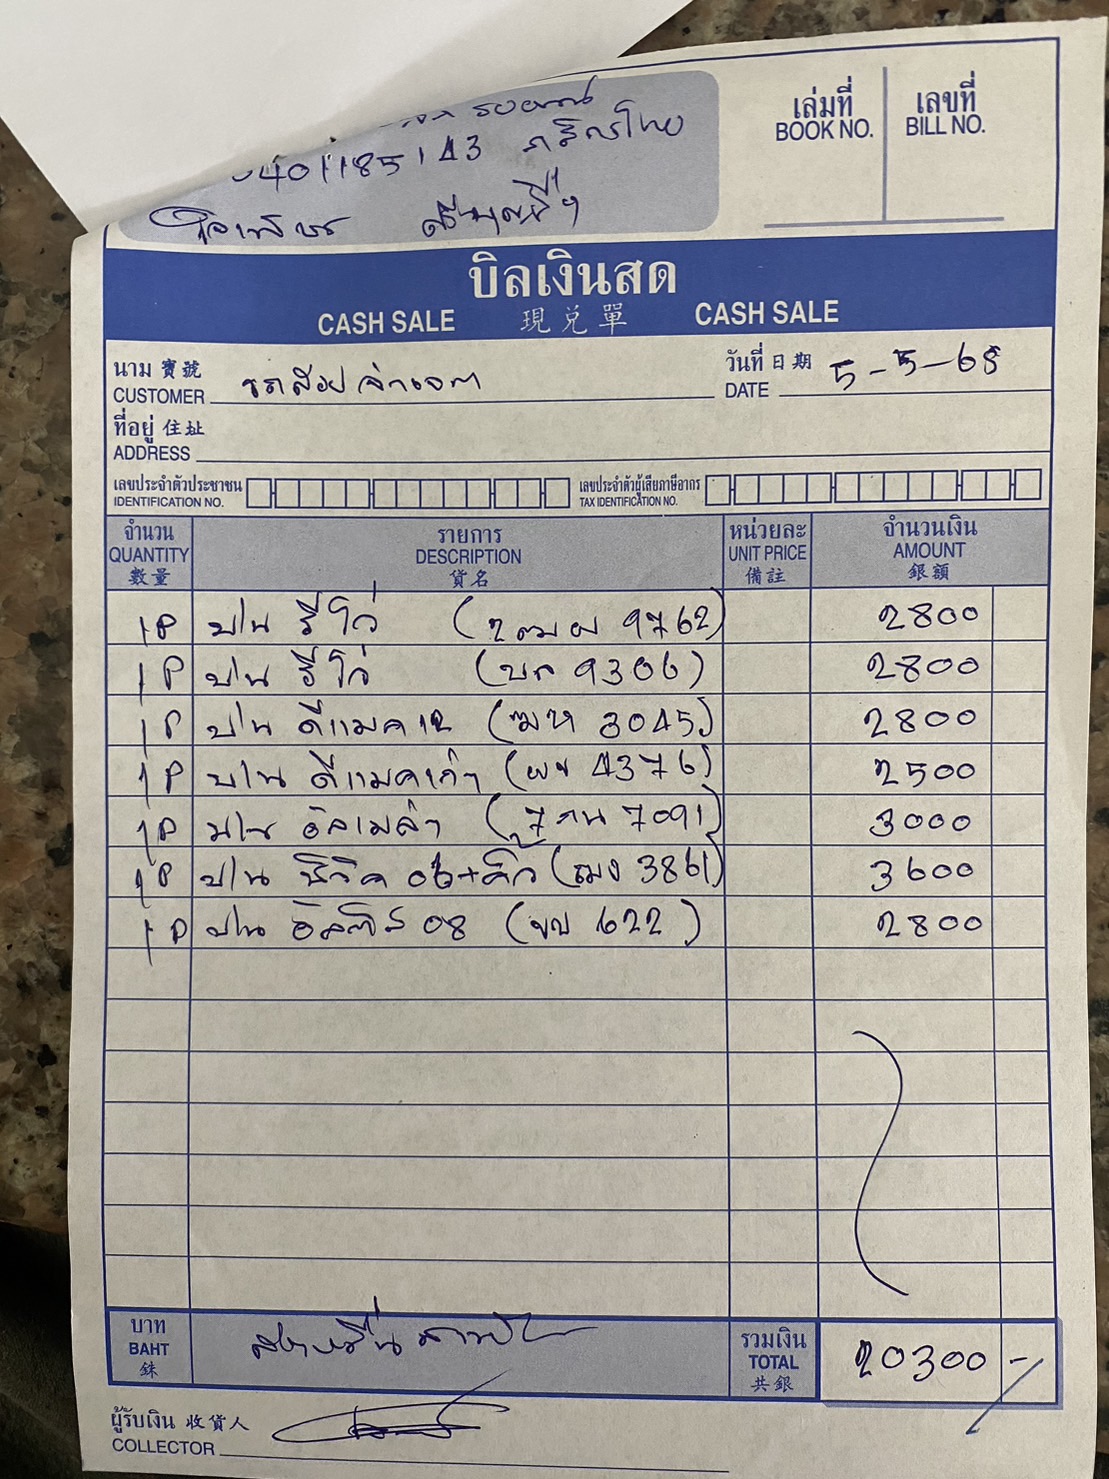 เล่มที่ เลขที่
BOOK NO. BILL NO.
401185143 กสิกรไทย
บิลเงินสด
CASH SALE 現兌單 CASH SALE
นาม 寶號 วันที่ 日期 5-5-68
CUSTOMER DATE
ที่อยู่ 住址
ADDRESS
เลขประจำตัวประชาชน เลขประจำตัวผู้เสียภาษีอากร
IDENTIFICATION NO. TAX IDENTIFICATION NO.
จำนวน รายการ หน่วยละ จำนวนเงิน
QUANTITY DESCRIPTION UNIT PRICE AMOUNT
數量 貨名 備註 銀額
1P ปน รีโว่ (2ฒผ 9762) 2800
1P ปน รีโว่ (บก 9306) 2800
1P ปน ดีแมค 12 (ฒห 3045) 2800
1P ปน ดีแมคเก่า (ผข 4376) 2500
1P ปน อัลเมล่า (7กน 7091) 3000
1P ปน ซีวิค 06+คิ้ว (ฌง 3861) 3600
1P ปน อัลติส 08 (ขบ 622) 2800
บาท สองหมื่นสามร้อย รวมเงิน 20300 -
BAHT TOTAL
銖 共銀
ผู้รับเงิน 收貨人
COLLECTOR